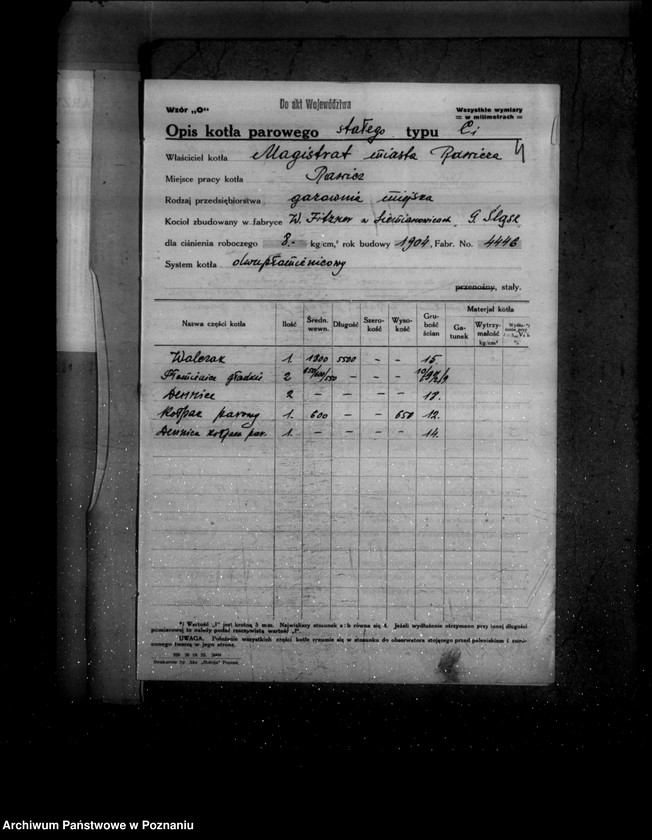 Wzór „O"
Do akt Województwa
Wszystkie wymiary
w milimetrach
Opis kotła parowego stałego typu Ci
Właściciel kotła Magistrat miasta Rawicza
Miejsce pracy kotła Rawicz
Rodzaj przedsiębiorstwa gazownia miejska
Kocioł zbudowany w fabryce W. Fitzner w Siemianowicach, G. Śląsk
dla ciśnienia roboczego 8.- kg/cm², rok budowy 1904, Fabr. No. 4446
System kotła dwupłomienicowy
przenośny, stały.
Nazwa części kotła Ilość Średn. wewn. Długość Szerokość Wysokość Grubość ścian Materjał kotła
Gatunek Wytrzymałość kg/cm²
Walczak 1. 1900 5500 - - 15.
Płomienice gładkie 2 - - -
Dennice 2 - - - - 19.
Kołpak parowy 1. 600 - - 650 12.
Dennica kołpaka par. 1. - - - - 14.
*) Wartość „l" jest krotną 5 mm. Największy stosunek a:b równa się 4. Jeżeli wydłużenie otrzymano przy innej długości
pomiarowej to należy podać rzeczywistą wartość „l".
UWAGA. Położenie wszystkich części kotła rozumie się w stosunku do obserwatora stojącego przed paleniskiem i zwróconego twarzą w jego stronę.
Drukarnia Sp. Akc. Poznań.
Archiwum Państwowe w Poznaniu